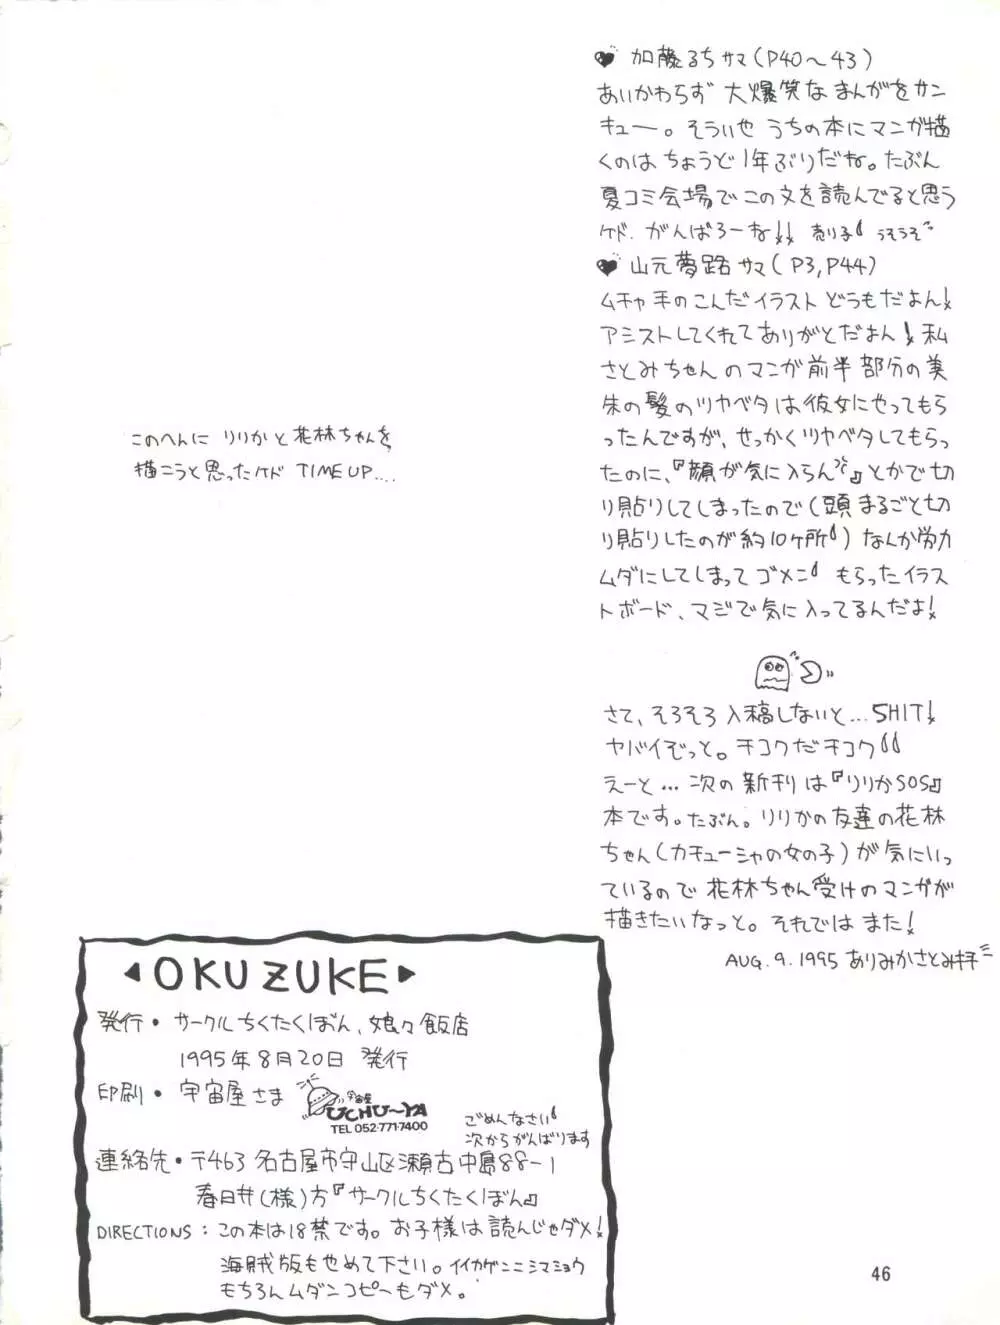 ♥ 加藤るちサマ(P40〜43)
あいかわらず 大爆笑なまんがをサン
キュー。そういや うちの本にマンガ描
くのは ちょうど1年ぶりだね。たぶん
夏コミ会場でこの文を読んでると思う
ケド、がんばろーな!! 売り子 うそうそ
♥ 山元夢路サマ(P3,P44)
ムチャ手のこんだイラスト どうもだよん!
アシストしてくれてありがとだよん! 私
さとみちゃんのマンガ前半部分の美
朱の髪のツヤベタは彼女にやってもら
ったんですが、せっかくツヤベタしてもらっ
たのに、『顔が気に入らん』とかで切
り貼りしてしまったので(頭まるごと切
り貼りしたのが約10ヶ所)なんか労力
ムダにしてしまって ゴメン もらったイラス
トボード、マジで気に入ってるんだよ!
このへんに りりかと花林ちゃんを
描こうと思ったケド TIME UP....
さて、そろそろ入稿しないと...SHIT!
ヤバイぞっと。チコクだチコク
えーと...次の新刊は『りりかSOS』
本です。たぶん。りりかの友達の花林
ちゃん(カチューシャの女の子)が気にいっ
ているので 花林ちゃん受けのマンガが
描きたいなっと。それでは また!
AUG. 9. 1995 ありみかさとみ拝
◀OKUZUKE▶
発行・サークルちくたくぼん、娘々飯店
1995年8月20日 発行
印刷・宇宙屋さま
宇宙屋
UCHU〜YA
TEL 052-771-7400
ごめんなさい
次からがんばります
連絡先・〒463 名古屋市守山区瀬古中島88-1
春日井(様)方『サークルちくたくぼん』
DIRECTIONS : この本は18禁です。お子様は読んじゃダメ!
海賊版もやめて下さい。イイカゲンニシマショウ
もちろんムダンコピーもダメ。
46